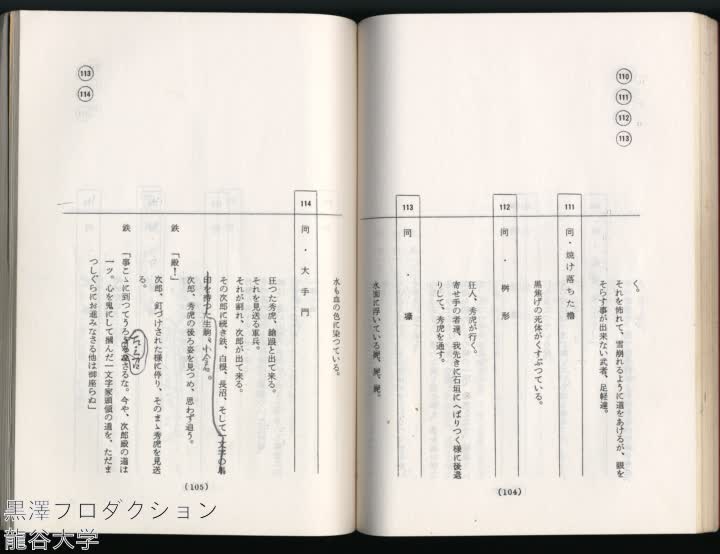 110
111
112
113
く。
それを怖れて、雪崩れるように道をあけるが、眼を
そらす事が出来ない武者、足軽達。
111 同・焼け落ちた櫓
黒焦げの死体がくすぶつている。
112 同・桝形
狂人、秀虎が行く。
寄せ手の者達、我先きに石垣にへばりつく様に後退
りして、秀虎を通す。
113 同・壕
水面に浮いている屍、屍、屍。
(104)
113
114
水も血の色に染つている。
114 同・大手門
狂つた秀虎、蹌踉と出て来る。
それを見送る軍兵。
それが割れ、次郎が出て来る。
その次郎に続き鉄、白根、長沼、そして一文字の馬
印を持つた生駒、小
次郎、秀虎の後ろ姿を見つめ、思わず追う。
鉄「殿!」
次郎、釘づけされた様に停り、そのまゝ秀虎を見送
る。
鉄「事こゝに到つてうろ
なさるな。今や、次郎殿の道は
一ツ。心を鬼にして掴んだ一文字家頭領の道を、ただま
つしぐらにお進みなさる他は御座らぬ」
(105)
黒澤プロダクション
龍谷大学